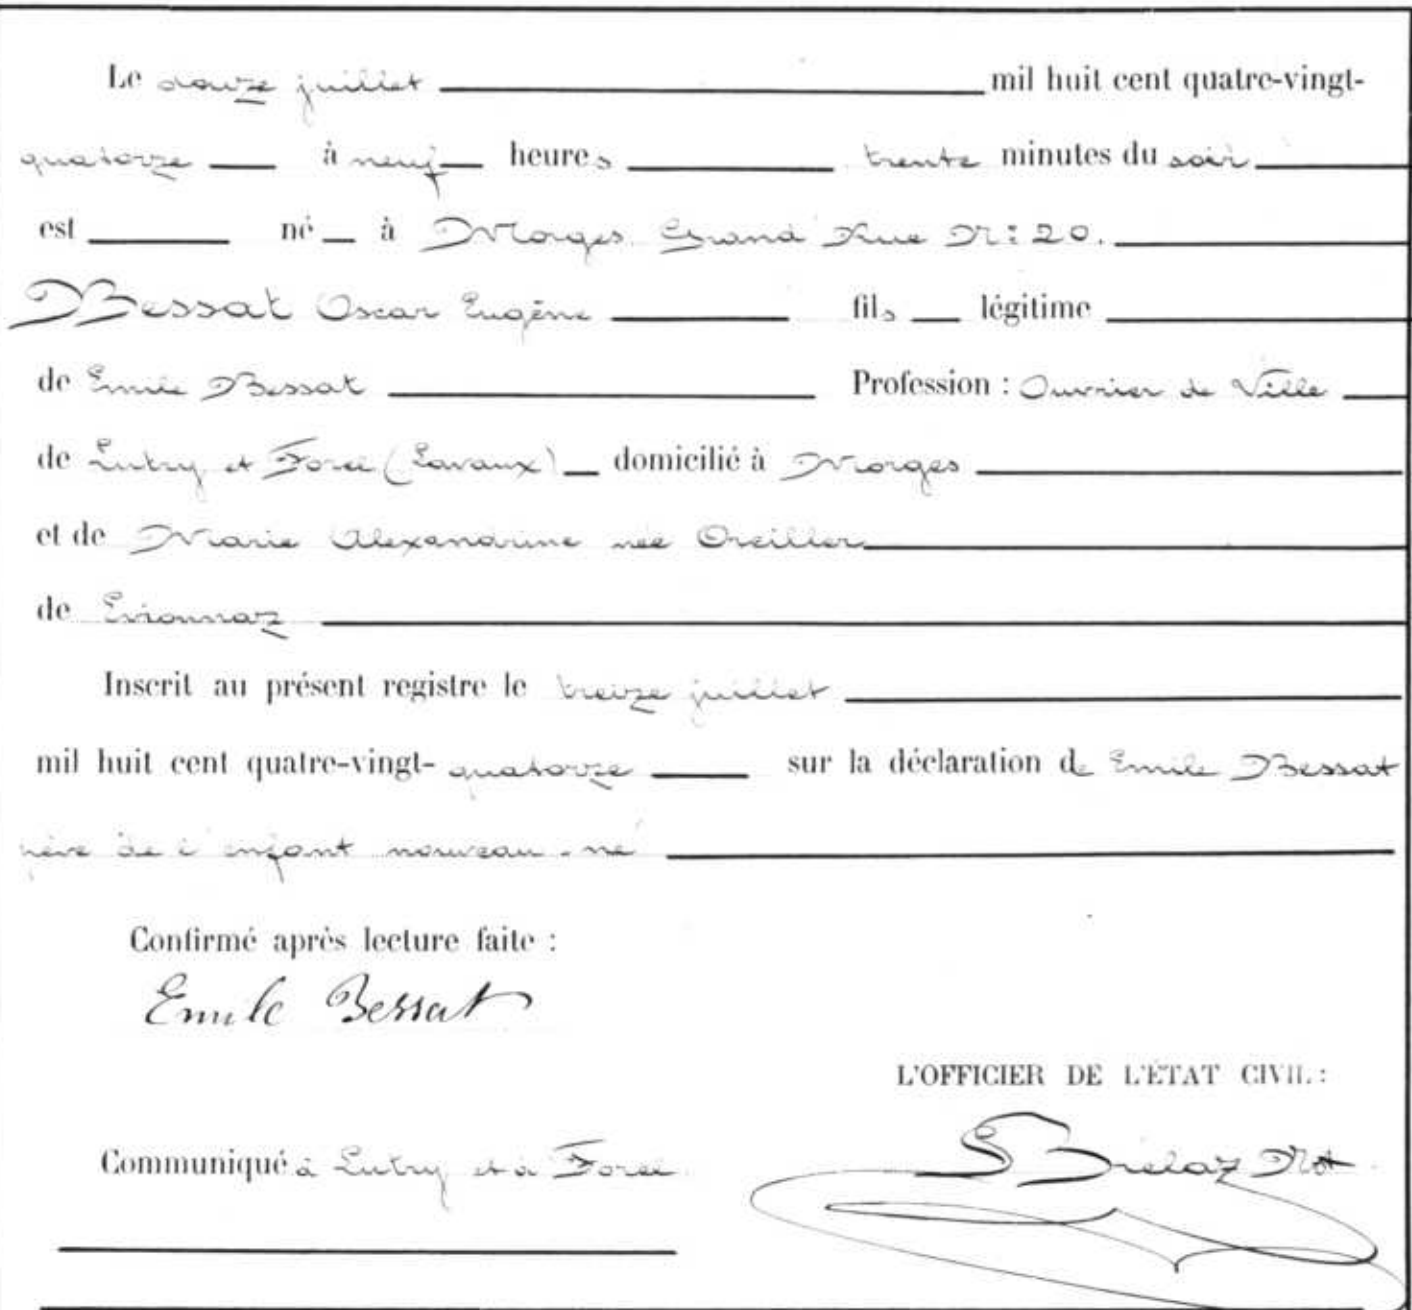 Le douze juillet mil huit cent quatre-vingt-
quatorze à neuf heures trente minutes du soir
est né à Morges. Grand'Rue N: 20.
Bessat Oscar Eugène fils légitime
de Emile Bessat Profession : Ouvrier de Ville
de Lutry et Forel (Lavaux) domicilié à Morges
et de Marie Alexandrine née Oreiller
de Evionnaz
Inscrit au présent registre le treize juillet
mil huit cent quatre-vingt-quatorze sur la déclaration de Emile Bessat
père de l'enfant nouveau-né
Confirmé après lecture faite :
Emile Bessat
L'OFFICIER DE L'ÉTAT CIVIL :
Communiqué à Lutry et à Forel.
Brélaz Not.